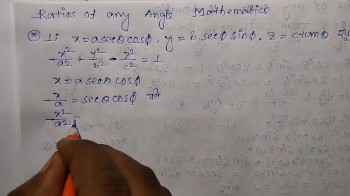 Ratios of any Angle Mathematics
* If x = a secθ cosφ, y = b secθ sinφ, z = c tanθ
x²/a² + y²/b² - z²/c² = 1
x = a secθ cosφ
x/a = secθ cosφ
x²/a²